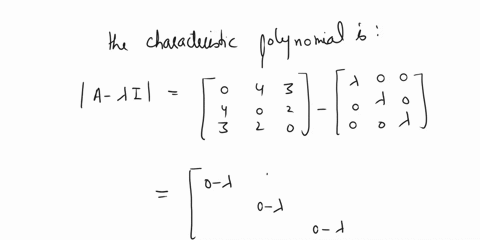 the characteristic polynomial is :
|A - λI| = [0 4 3
4 0 2
3 2 0] - [λ 0 0
0 λ 0
0 0 λ]
= [0-λ
0-λ
0-λ